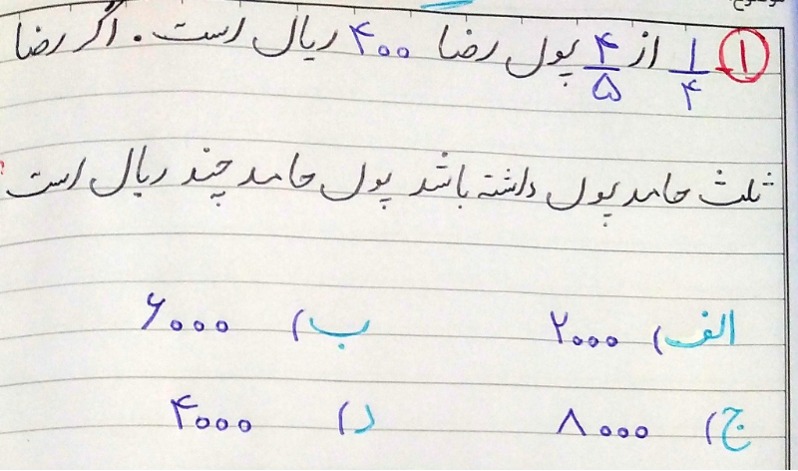 ۱ ۱/۴ از ۴/۵ پول رضا ۴۰۰ ریال است. اگر رضا
ثلث حامد پول داشته باشد پول حامد چند ریال است؟
الف) ۲۰۰۰ ب) ۶۰۰۰
ج) ۸۰۰۰ د) ۴۰۰۰